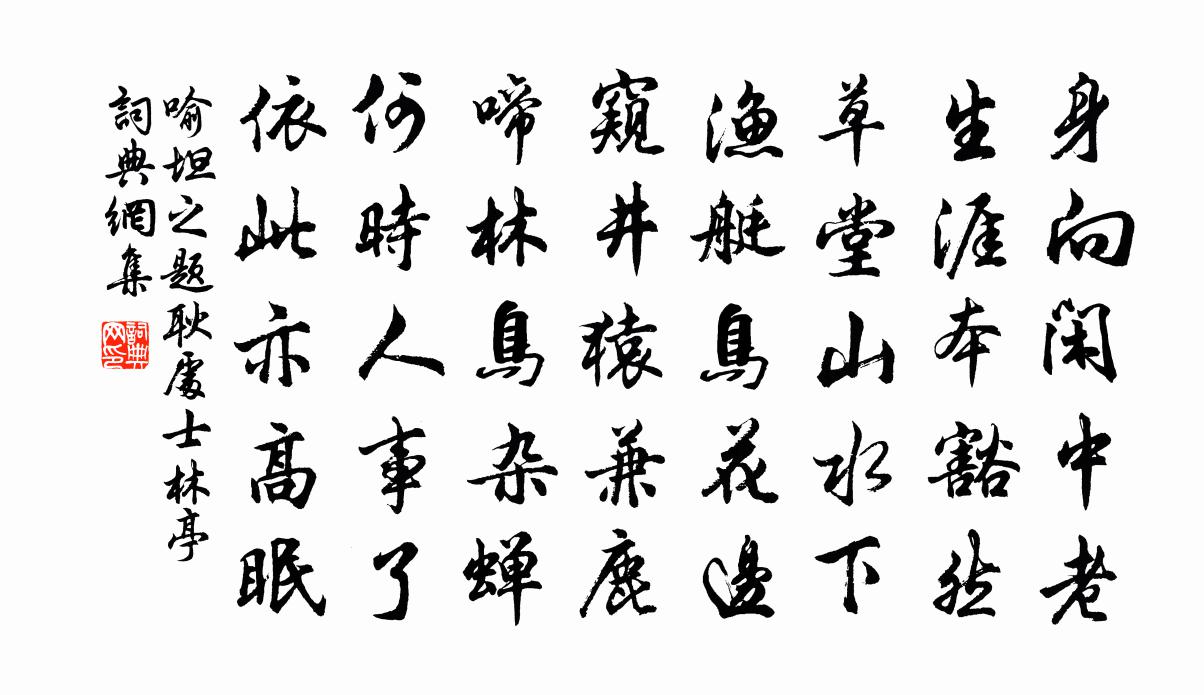 身向閑中老
生涯本豁然
草堂山水下
漁艇鳥花邊
窺井猿兼鹿
啼林鳥杂蝉
何時人事了
依此亦高眠
喻坦之题耿處士林亭
詞典網集
詞典网印